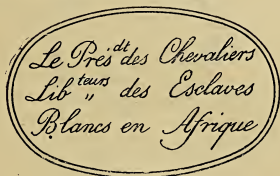 Le Prés.dt des Chevaliers
Lib.teurs „ des Esclaves
Blancs en Afrique